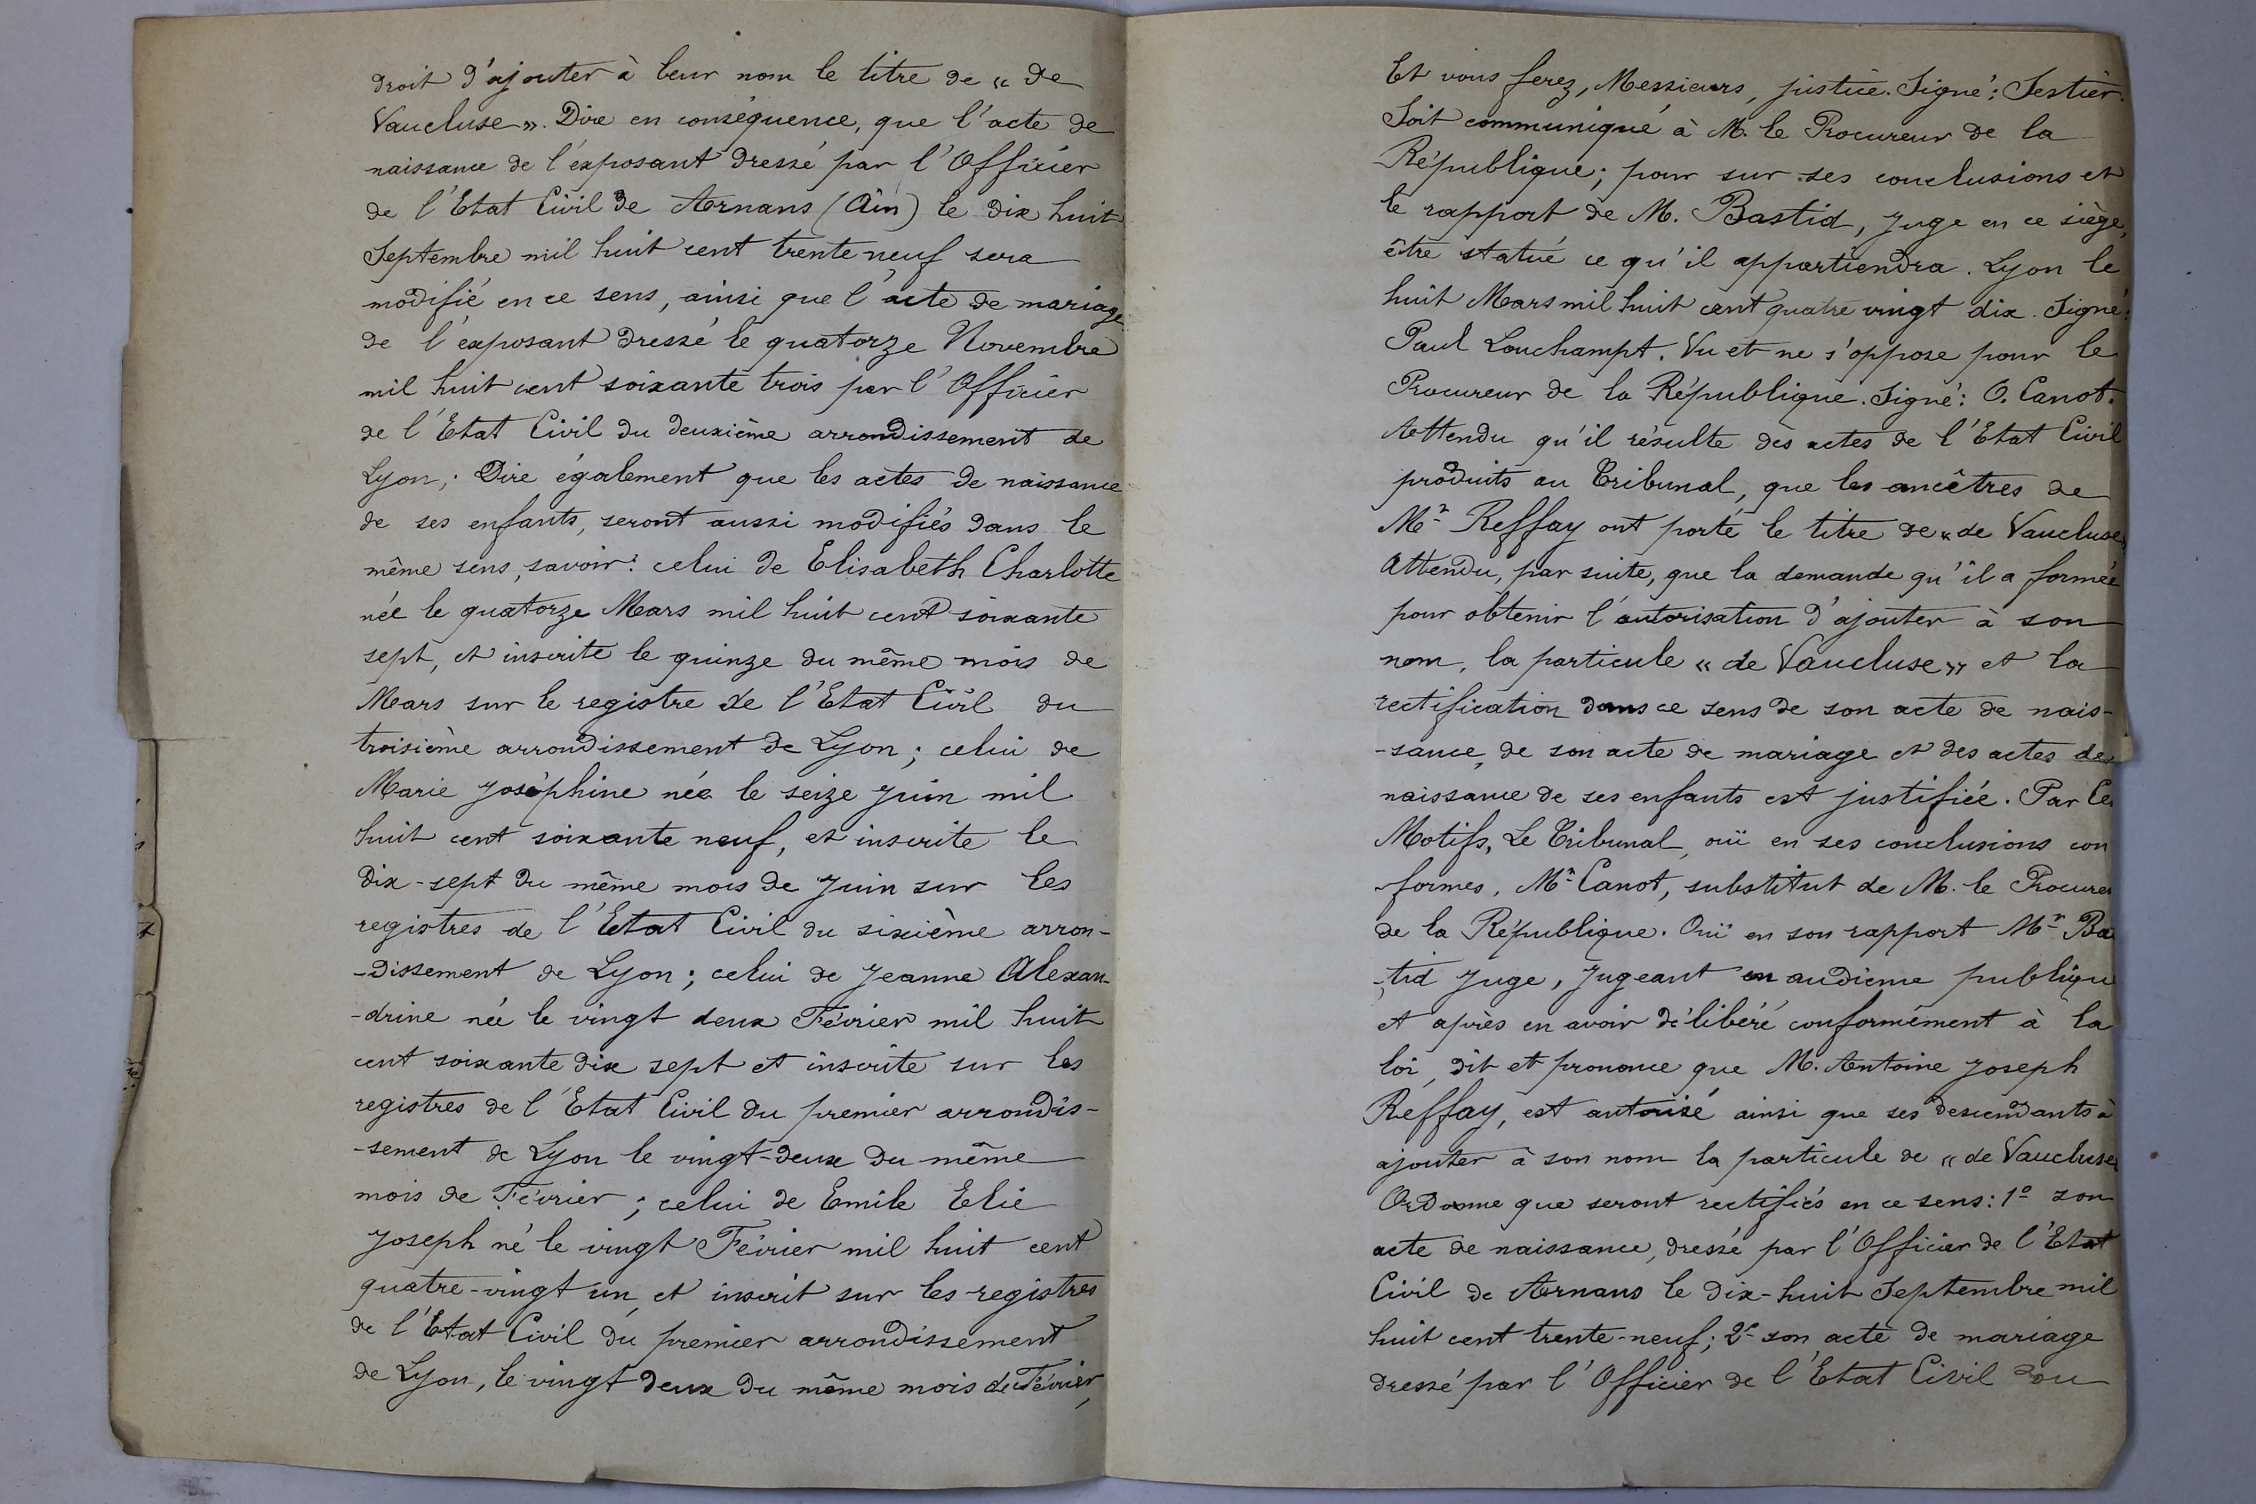 droit d'ajouter à leur nom le titre de « de
Vaucluse ». Dire en conséquence, que l'acte de
naissance de l'exposant dressé par l'Officier
de l'Etat Civil de Arnans (Ain) le dix huit
Septembre mil huit cent trente neuf sera
modifié en ce sens, ainsi que l'acte de mariage
de l'exposant dressé le quatorze Novembre
mil huit cent soixante trois par l'Officier
de l'Etat Civil du deuxième arrondissement de
Lyon; Dire également que les actes de naissance
de ses enfants, seront aussi modifiés dans le
même sens, savoir: celui de Elisabeth Charlotte
née le quatorze Mars mil huit cent soixante
sept, et inscrite le quinze du même mois de
Mars sur le registre de l'Etat Civil du
troisième arrondissement de Lyon; celui de
Marie Joséphine née le seize Juin mil
huit cent soixante neuf, et inscrite le
dix-sept du même mois de Juin sur les
registres de l'Etat Civil du sixième arron-
-dissement de Lyon; celui de Jeanne Alexan-
-drine née le vingt deux Février mil huit
cent soixante dix sept et inscrite sur les
registres de l'Etat Civil du premier arrondis-
-sement de Lyon le vingt-deux du même
mois de Février; celui de Emile Elie
Joseph né le vingt Février mil huit cent
quatre-vingt un, et inscrit sur les registres
de l'Etat Civil du premier arrondissement
de Lyon, le vingt deux du même mois de Février,
Et vous ferez, Messieurs, justice. Signé: Sestier.
Soit communiqué à M. le Procureur de la
République; pour sur ses conclusions et
le rapport de M. Bastid, Juge en ce siège,
être statué ce qu'il appartiendra. Lyon le
huit Mars mil huit cent quatre vingt dix. Signé:
Paul Louchampt. Vu et ne s'oppose pour le
Procureur de la République. Signé: O. Canot.
Attendu qu'il résulte des actes de l'Etat Civil
produits au Tribunal, que les ancêtres de
Mr Reffay ont porté le titre de « de Vaucluse »
Attendu, par suite, que la demande qu'il a formée
pour obtenir l'autorisation d'ajouter à son
nom, la particule « de Vaucluse » et la
rectification dans ce sens de son acte de nais-
-sance, de son acte de mariage et des actes de
naissance de ses enfants est justifiée. Par Ces
Motifs, Le Tribunal, ouï en ses conclusions con
-formes, Mr Canot, substitut de M. le Procureu
de la République. Ouï en son rapport Mr Bas
-tid Juge, Jugeant en audience publique
et après en avoir délibéré conformément à la
loi, dit et prononce que M. Antoine Joseph
Reffay, est autorisé ainsi que ses descendants à
ajouter à son nom la particule de « de Vaucluse »
Ordonne que seront rectifiés en ce sens: 1º son
acte de naissance, dressé par l'Officier de l'Etat
Civil de Arnans le dix-huit Septembre mil
huit cent trente-neuf; 2º son acte de mariage
dressé par l'Officier de l'Etat Civil du